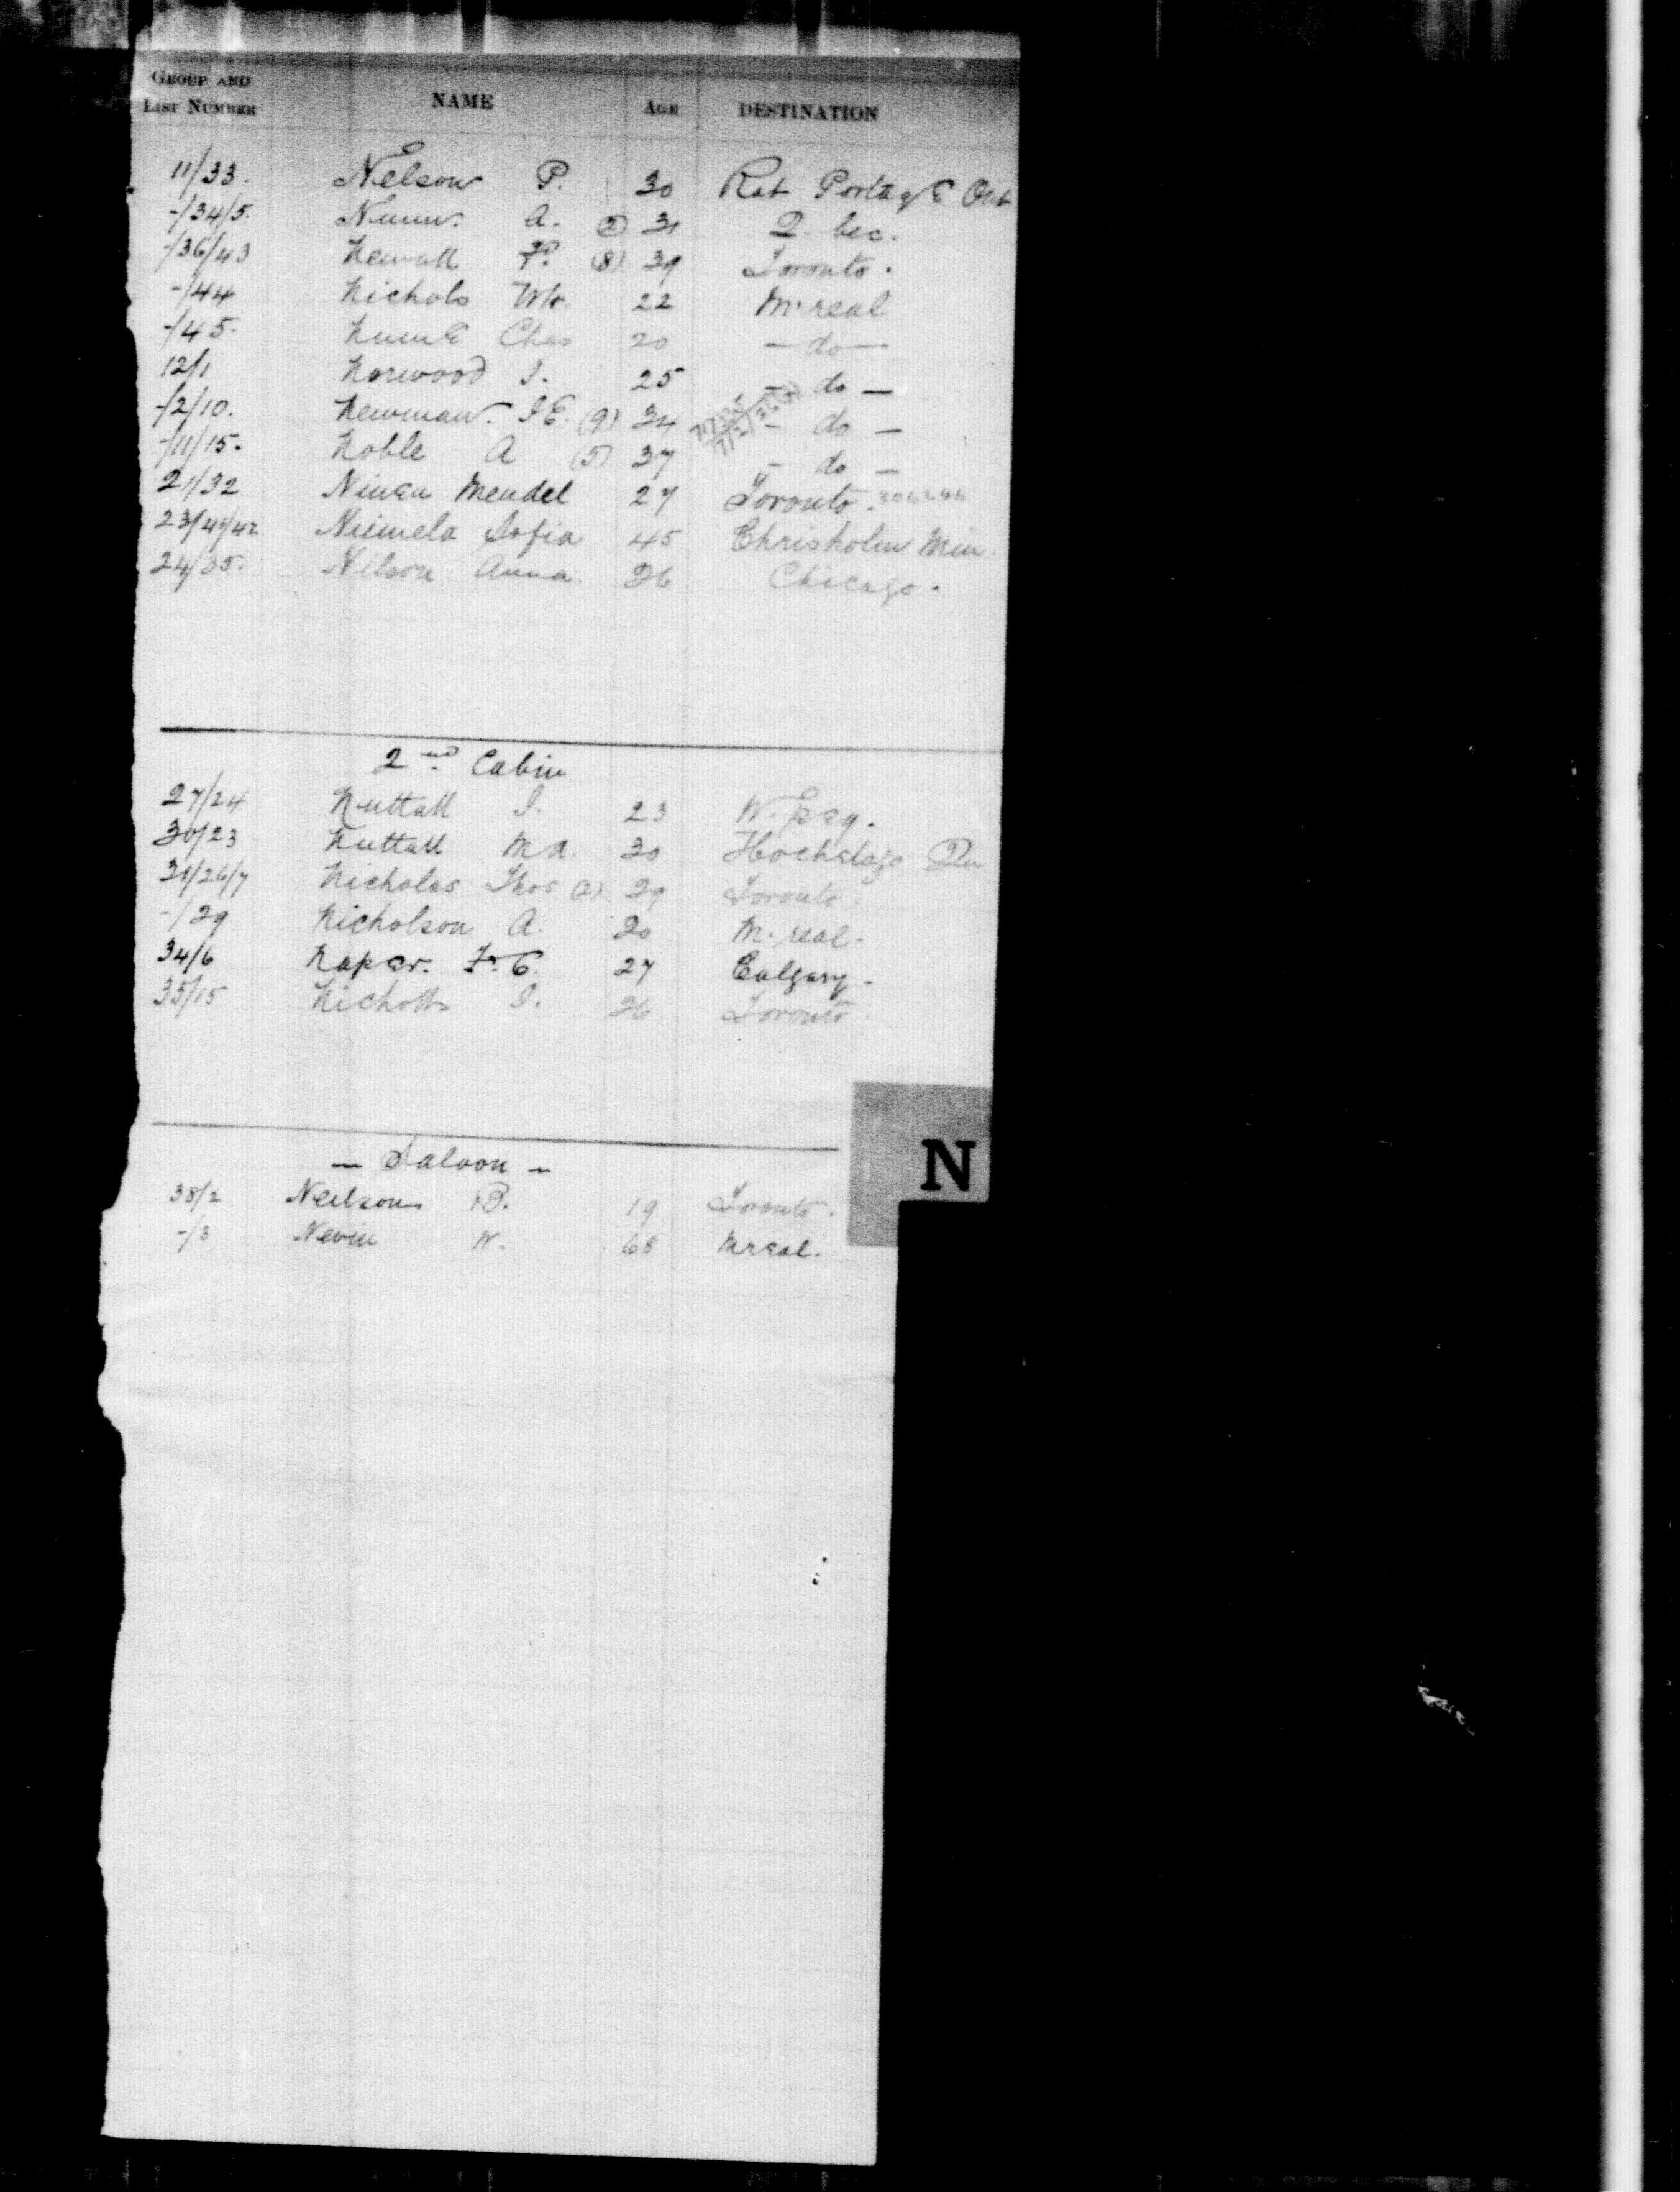 GROUP AND LIST NUMBER NAME AGE DESTINATION
11/33. Nelson P. 30 Rat Portage Ont
-/34/5. Nunn. A. (2) 31 Q. bec.
-/36/43 Newall (8) 39 Toronto.
-/44 Nichols Wr. 22 M. real
-/45. Chas 20 — do —
12/1 Norwood J. 25 — do —
-/2/10. Newman. J E. (9) 34 — do —
-/11/15. Noble A (5) 37 — do —
21/32 Mendel 27 Toronto.
23/41/42 Niemela Sofia 45 Chrisholm Min
24/35. Nilson Anna 26 Chicago.
2nd Cabin
27/24 Nuttall J. 23 W. peg.
30/23 Nuttall M A. 30 Hochelaga Qu
31/26/7 Nicholas Thos (2) 29 Toronto.
-/29 Nicholson A. 20 M. real.
34/6 Naper. F. C. 27 Calgary.
35/15 Nicholls J. 26 Toronto
— Saloon —
38/2 Neilson B. 19 Toronto.
-/3 Nevin W. 68 Mreal.
N